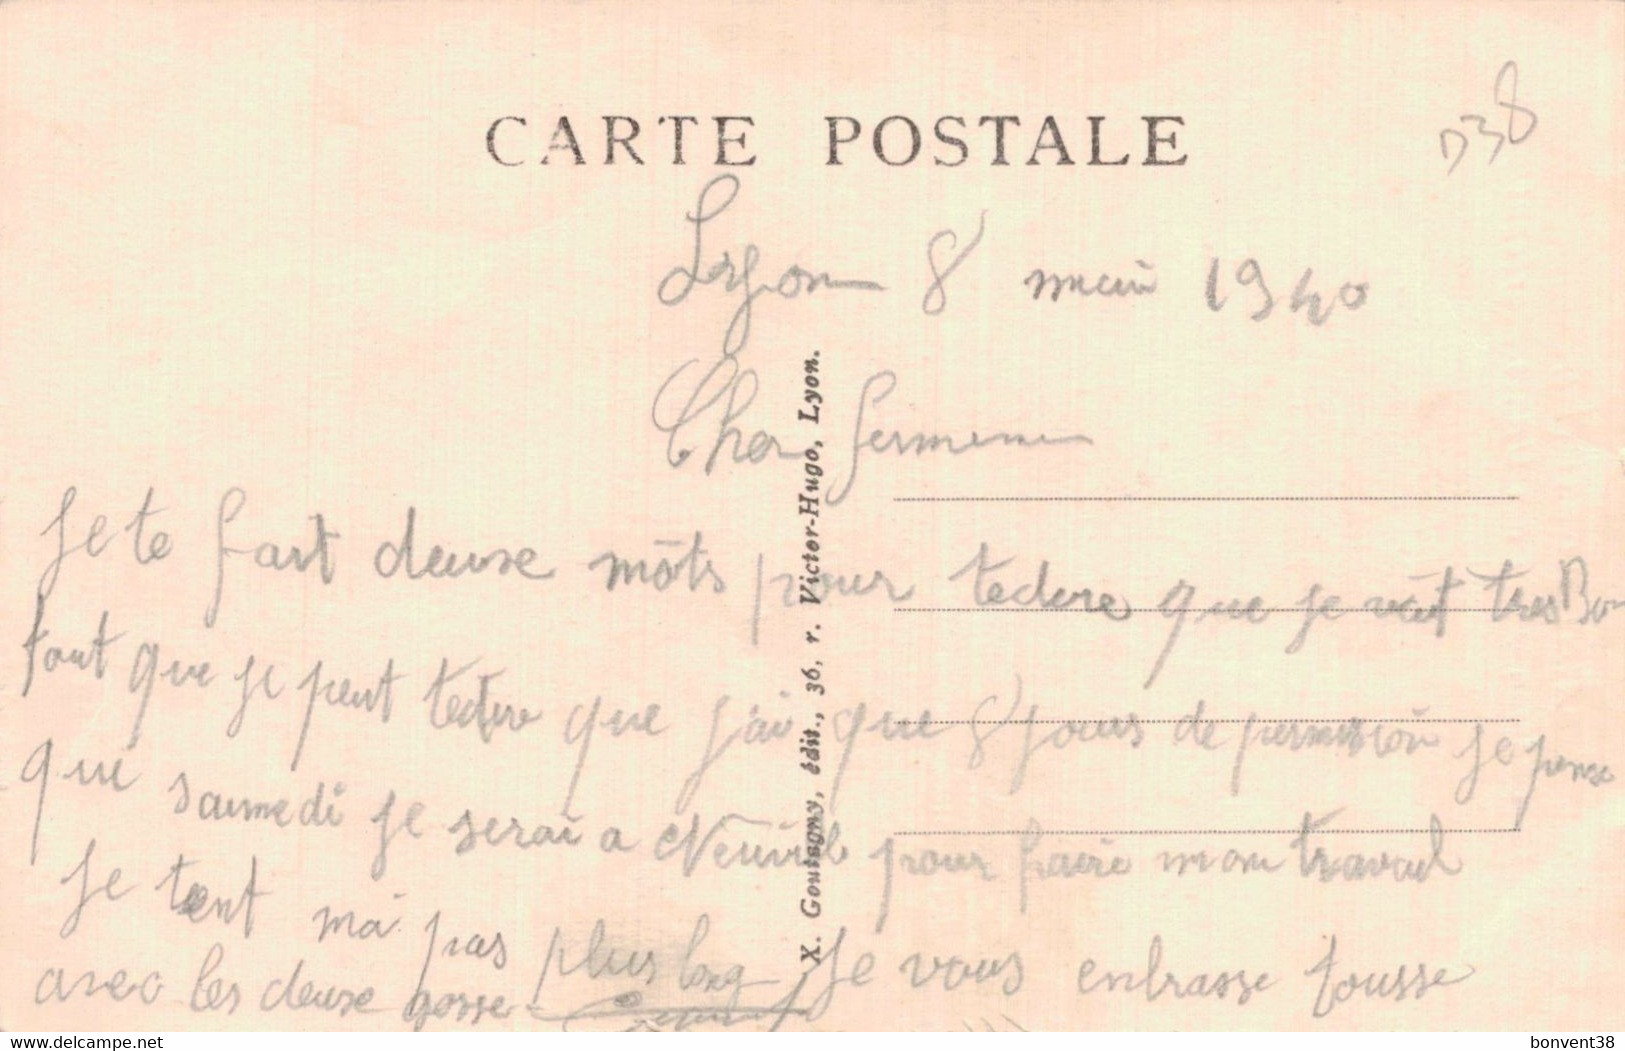 CARTE POSTALE
D38
Lyon 8 mai 1940
Cher
Je te fait deuxe môts pour tedire que je vait tres Bon
tout que je peut tedire que j'ai que 8 jours de permision je pense
que samedi je serai a Neuville pour faire mon travail
je tent mai pas plus long je vous enbrasse tousse
avec les deuxe gosse
X. Goutagny, édit., 36, r. Victor-Hugo, Lyon.
www.delcampe.net
bonvent38